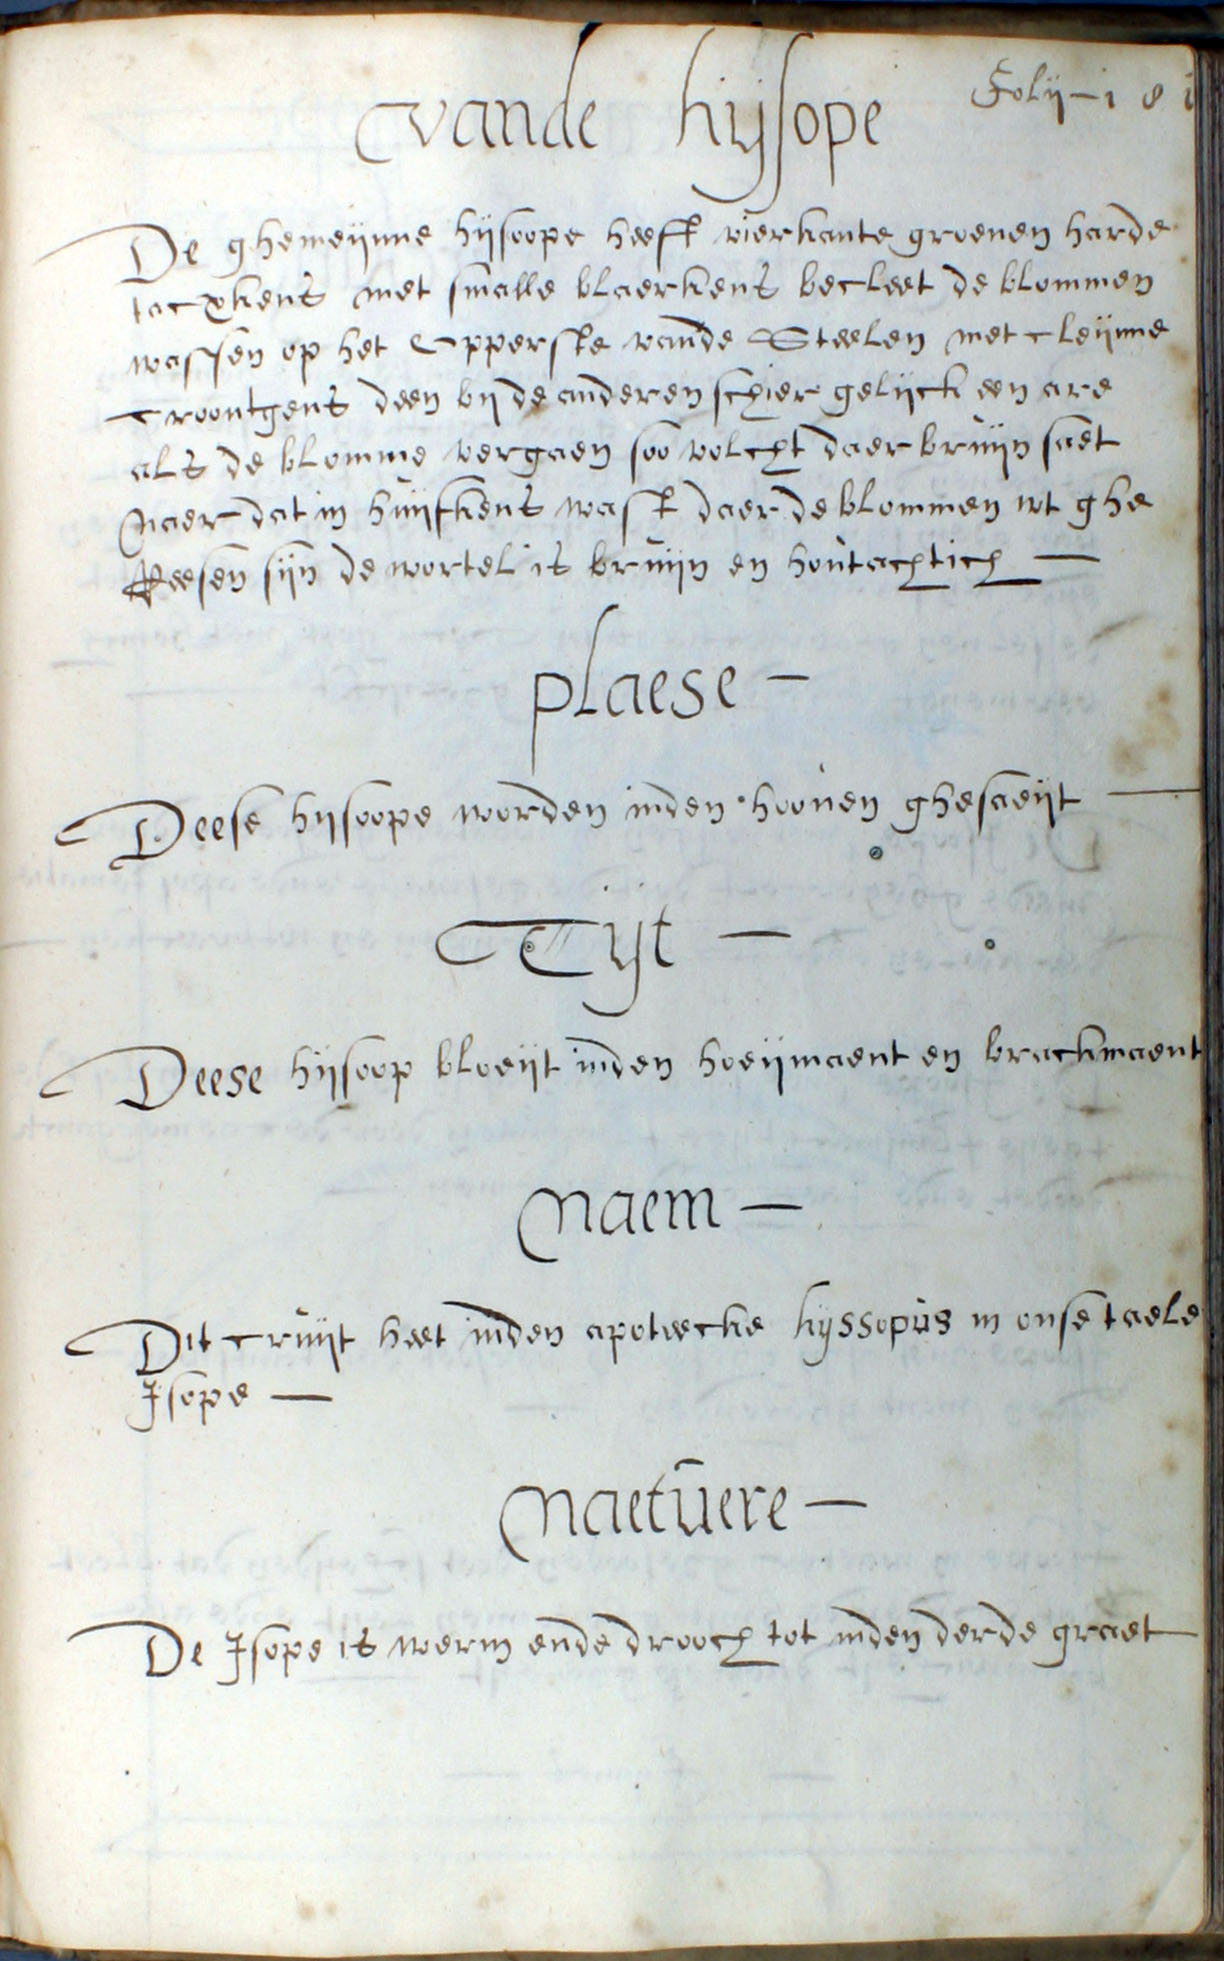 Folij - 1 8 1
vande hijsope
De ghemeijnne hijsoope heeft vierkante groenen harde
tacxkens met smalle blaerkens becleet de blommen
wassen op het opperste vande Steelen met cleijnne
croontgens deen bij de anderen schier gelijck een are
als de blomme vergaen soo volcht daer bruijn saet
Naer dat in huijskens wast daer de blommen wt ghe
Reesen sijn de wortel is bruijn en houtachtich —
plaese —
Deese hijsoope worden inden hoouen ghesaeijt —
Tijt —
Deese hijsoop bloeijt inden hoeijmaent en brackmaent
Naem —
Dit cruijt heet inden apoteecke hijssopus in onse taele
Isope —
Naetuere —
De Isope is werm ende drooch tot inden derde graet